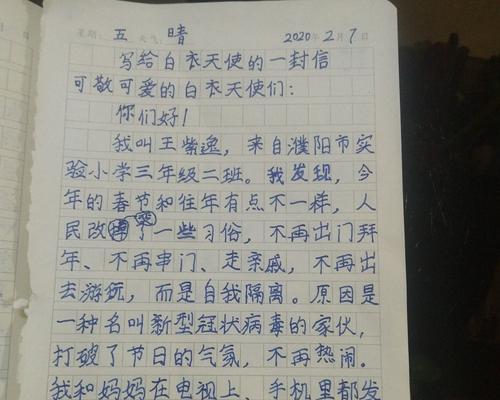 星期：五 天气：晴 2020年2月7日
写给白衣天使的一封信
可敬可爱的白衣天使们：
你们好！
我叫王紫逸，来自濮阳市实
验小学三年级二班。我发现，今
年的春节和往年有点不一样，人
民改变了一些习俗，不再出门拜
年、不再串门、走亲戚，不再出
去游玩，而是自我隔离。原因是
一种名叫新型冠状病毒的家伙，
打破了节日的气氛，不再热闹。
我和妈妈在电视上、手机里都发